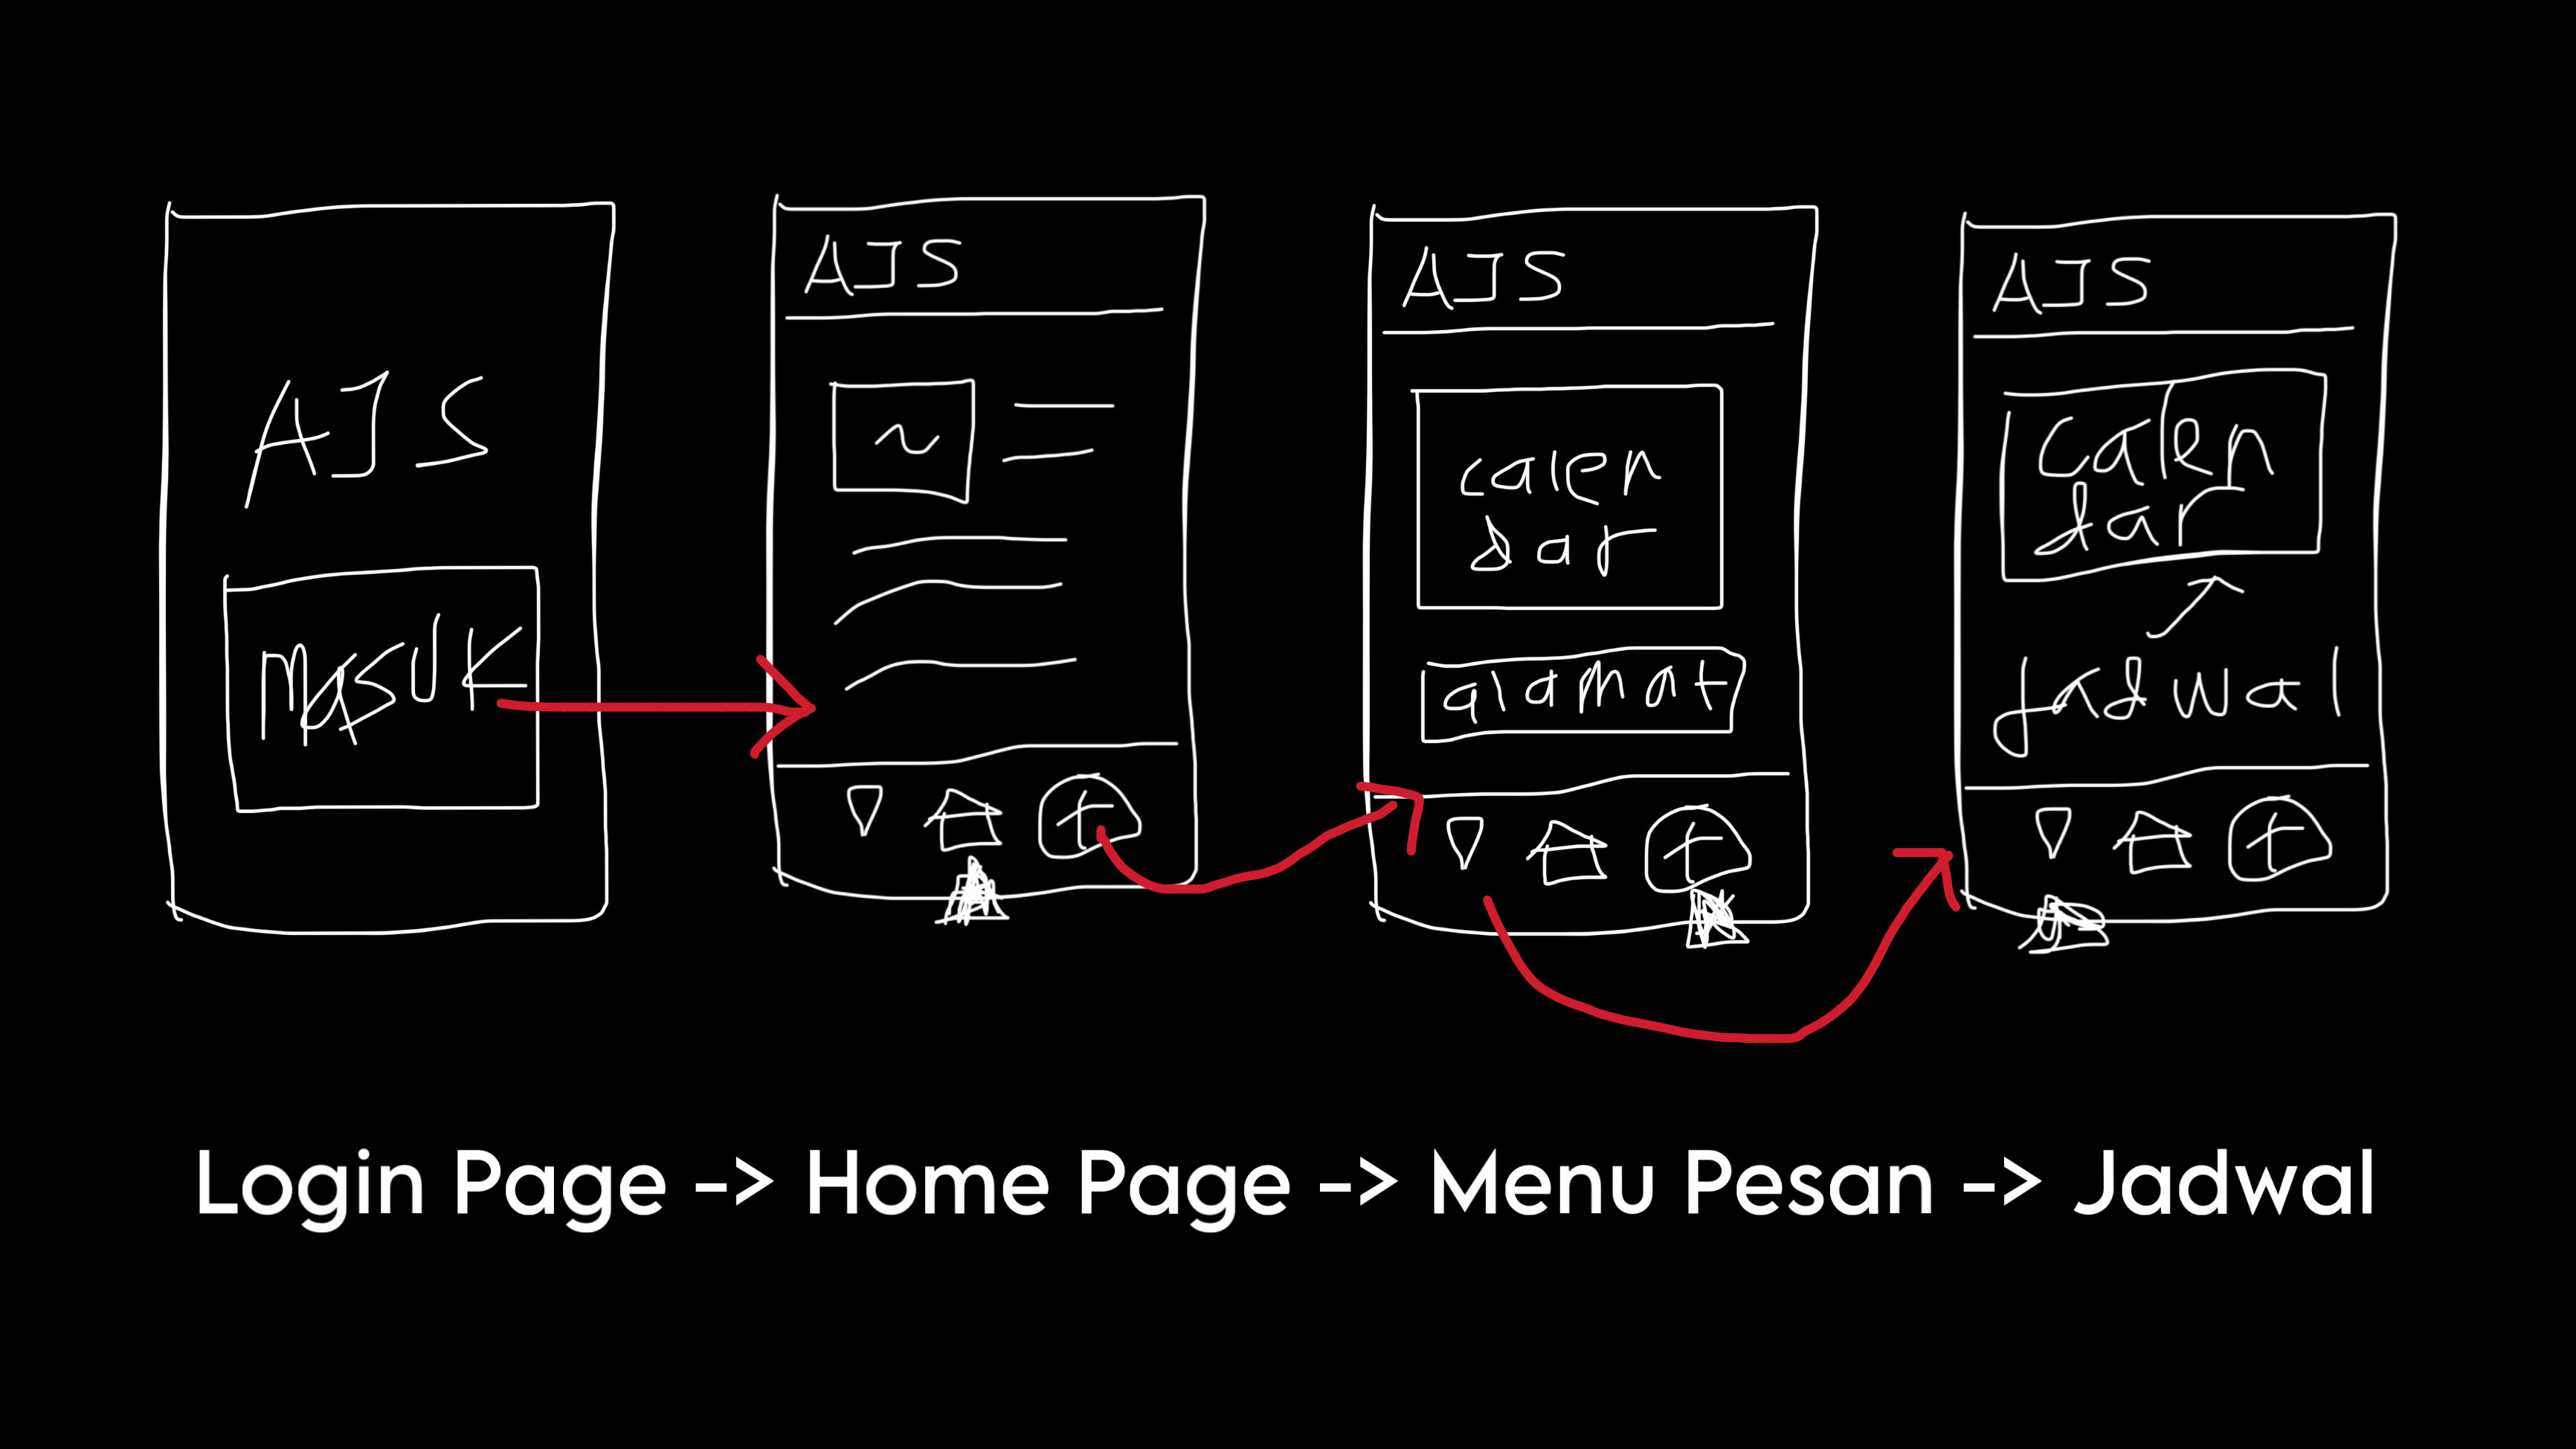 AJS
Masuk
AJS
AJS
calen
dar
alamat
AJS
calen
dar
Jadwal
Login Page -> Home Page -> Menu Pesan -> Jadwal